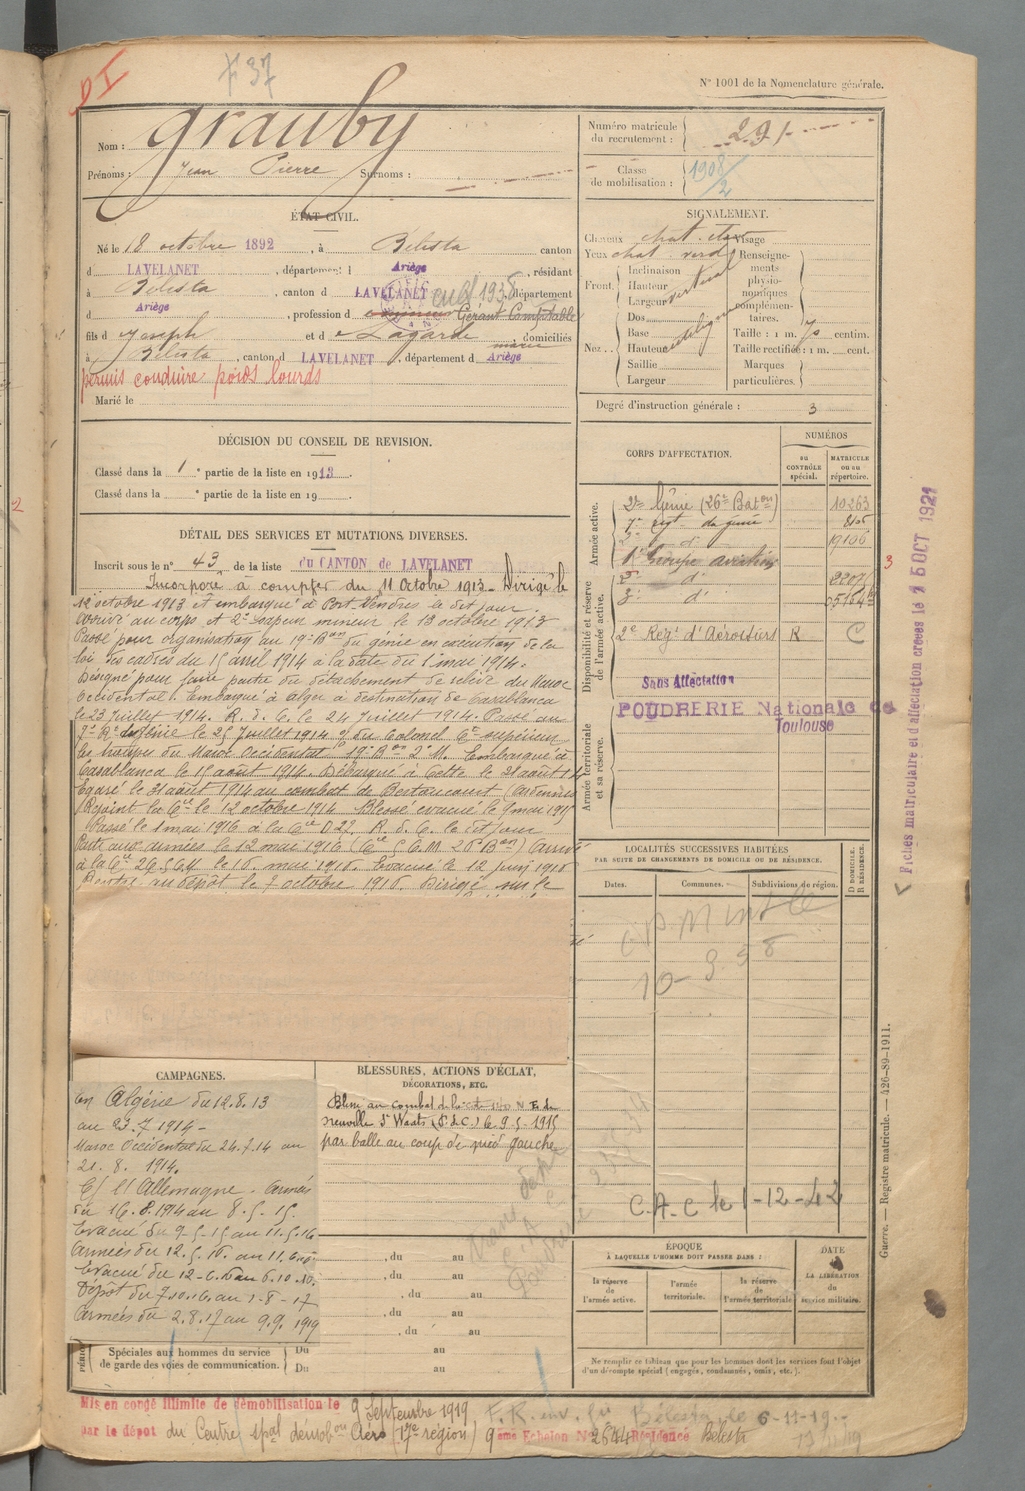 DI
F 37
N° 1001 de la Nomenclature générale.
Nom : Grauby
Prénoms : Jean Pierre Surnoms :
Numéro matricule du recrutement : 291
Classe de mobilisation : 1908/2
ÉTAT CIVIL.
Né le 18 octobre 1892, à Bélesta canton
d LAVELANET, département d Ariège, résidant
à Bélesta, canton d LAVELANET, département
d Ariège, profession d Gérant Comptable
fils d Joseph et d Lagarde marie, domiciliés
à Bélesta, canton d LAVELANET, département d Ariège
permis conduire poids lourds
Marié le
SIGNALEMENT.
Cheveux chat. Visage
Yeux chat. verd Renseignements physionomiques complémentaires.
Front. Inclinaison vertical
Hauteur
Largeur
Nez.. Dos
Base
Hauteur
Saillie
Largeur
Taille : 1 m. 70 centim.
Taille rectifiée : 1 m. cent.
Marques particulières.
Degré d'instruction générale : 3
DÉCISION DU CONSEIL DE REVISION.
Classé dans la 1e partie de la liste en 1913.
Classé dans la e partie de la liste en 19
DÉTAIL DES SERVICES ET MUTATIONS DIVERSES.
Inscrit sous le n° 43 de la liste du CANTON de LAVELANET
Incorporé à compter du 11 Octobre 1913. Dirigé le
12 octobre 1913 et embarqué à Port-Vendres le dit jour.
Arrivé au corps et 2e Sapeur mineur le 13 octobre 1913
Passé pour organisation au 19e Bon du génie en exécution de la
loi des cadres du 15 avril 1914 à la date du 1er mai 1914.
Désigné pour faire partie du détachement de relève du Maroc
Occidental. Embarqué à Alger à destination de Casablanca
le 23 Juillet 1914. R. d. C. le 24 Juillet 1914. Passé au
Colonel Ct supérieur
les troupes du Maroc Occidental 19e Bon 2e M. Embarqué à
Casablanca le 15 août 1914. Débarqué à Cette le 21 août 14
Egaré le 31 août 1914 au combat de Bertoncourt (Ardennes)
Rejoint la Cie le 12 octobre 1914. Blessé évacué le 9 mai 1915
Passé le 1 mai 1916 à la Cie D 27. R. d. C. le dit jour
Parti aux armées le 12 mai 1916 (Cie 5 G. M. 26e Bon) Arrivé
à la Cie 26/5 G M le 16 mai 1916. Evacué le 12 juin 1916
Rentré au dépôt le 7 octobre 1916. Dirigé sur le
CORPS D'AFFECTATION.
NUMÉROS
au CONTRÔLE spécial.
MATRICULE ou au répertoire.
Armée active.
2e Génie (26e Baton) 10263
7e régt du génie
2e d° 19106
1er Groupe aviation
Disponibilité et réserve de l'armée active.
2e d° 2207
3e d° 25164
2e Régt d'Aérostiers R C
Sans Affectation
Armée territoriale et sa réserve.
POUDRERIE Nationale de
Toulouse
Fiches matriculaire et d'affectation créées le 15 OCT 1921
LOCALITÉS SUCCESSIVES HABITÉES
PAR SUITE DE CHANGEMENTS DE DOMICILE OU DE RÉSIDENCE.
Dates. Communes. Subdivisions de région. D DOMICILE. R RÉSIDENCE.
C.A.C le 1-12-42
CAMPAGNES.
En Algérie du 12.8.13
au 23.7 1914 -
Maroc Occidental du 24.7.14 au
21. 8. 1914.
C/ l'Allemagne. Armées
du 16.8.1914 au 8.5.15.
Evacué du 9.5.15 au 11.5.16
Armées du 12.5.16. au 11.6.16
Evacué du 12-6.16 au 6.10.16.
Dépôt du 7.10.16. au 1-8-17
Armées du 2.8.17 au 9.9. 1919
BLESSURES, ACTIONS D'ÉCLAT,
DÉCORATIONS, ETC.
Blessé au combat de la cote 140 N. E. de
neuville St Waats (P. d. C.) le 9-5-1915
par balle au coup de pied gauche
, du au
, du au
, du au
, du au
Spéciales aux hommes du service
de garde des voies de communication.
Du au
Du au
ÉPOQUE
À LAQUELLE L'HOMME DOIT PASSER DANS :
la réserve de l'armée active.
l'armée territoriale.
la réserve de l'armée territoriale
DATE
DE LA LIBÉRATION du service militaire.
Ne remplir ce tableau que pour les hommes dont les services font l'objet
d'un décompte spécial (engagés, condamnés, omis, etc.).
Guerre. — Registre matricule. — 426-89-1911.
Mis en congé illimité de démobilisation le 9 Septembre 1919
par le dépôt du Centre spal démobon Aéro (17e région) 9ème Echelon N° 2644 Résidence Bélesta
F. R. env. Bélesta, le 6-11-19.